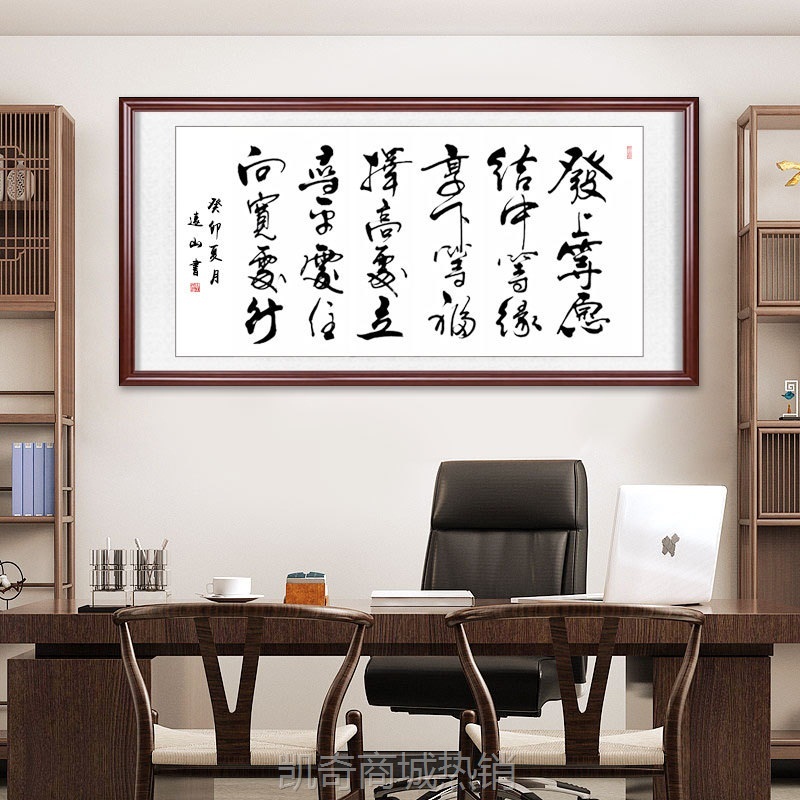 發上等愿
結中等緣
享下等福
擇高處立
尋平處住
向寬處行
癸卯夏月
遠山書
凯奇商城热销